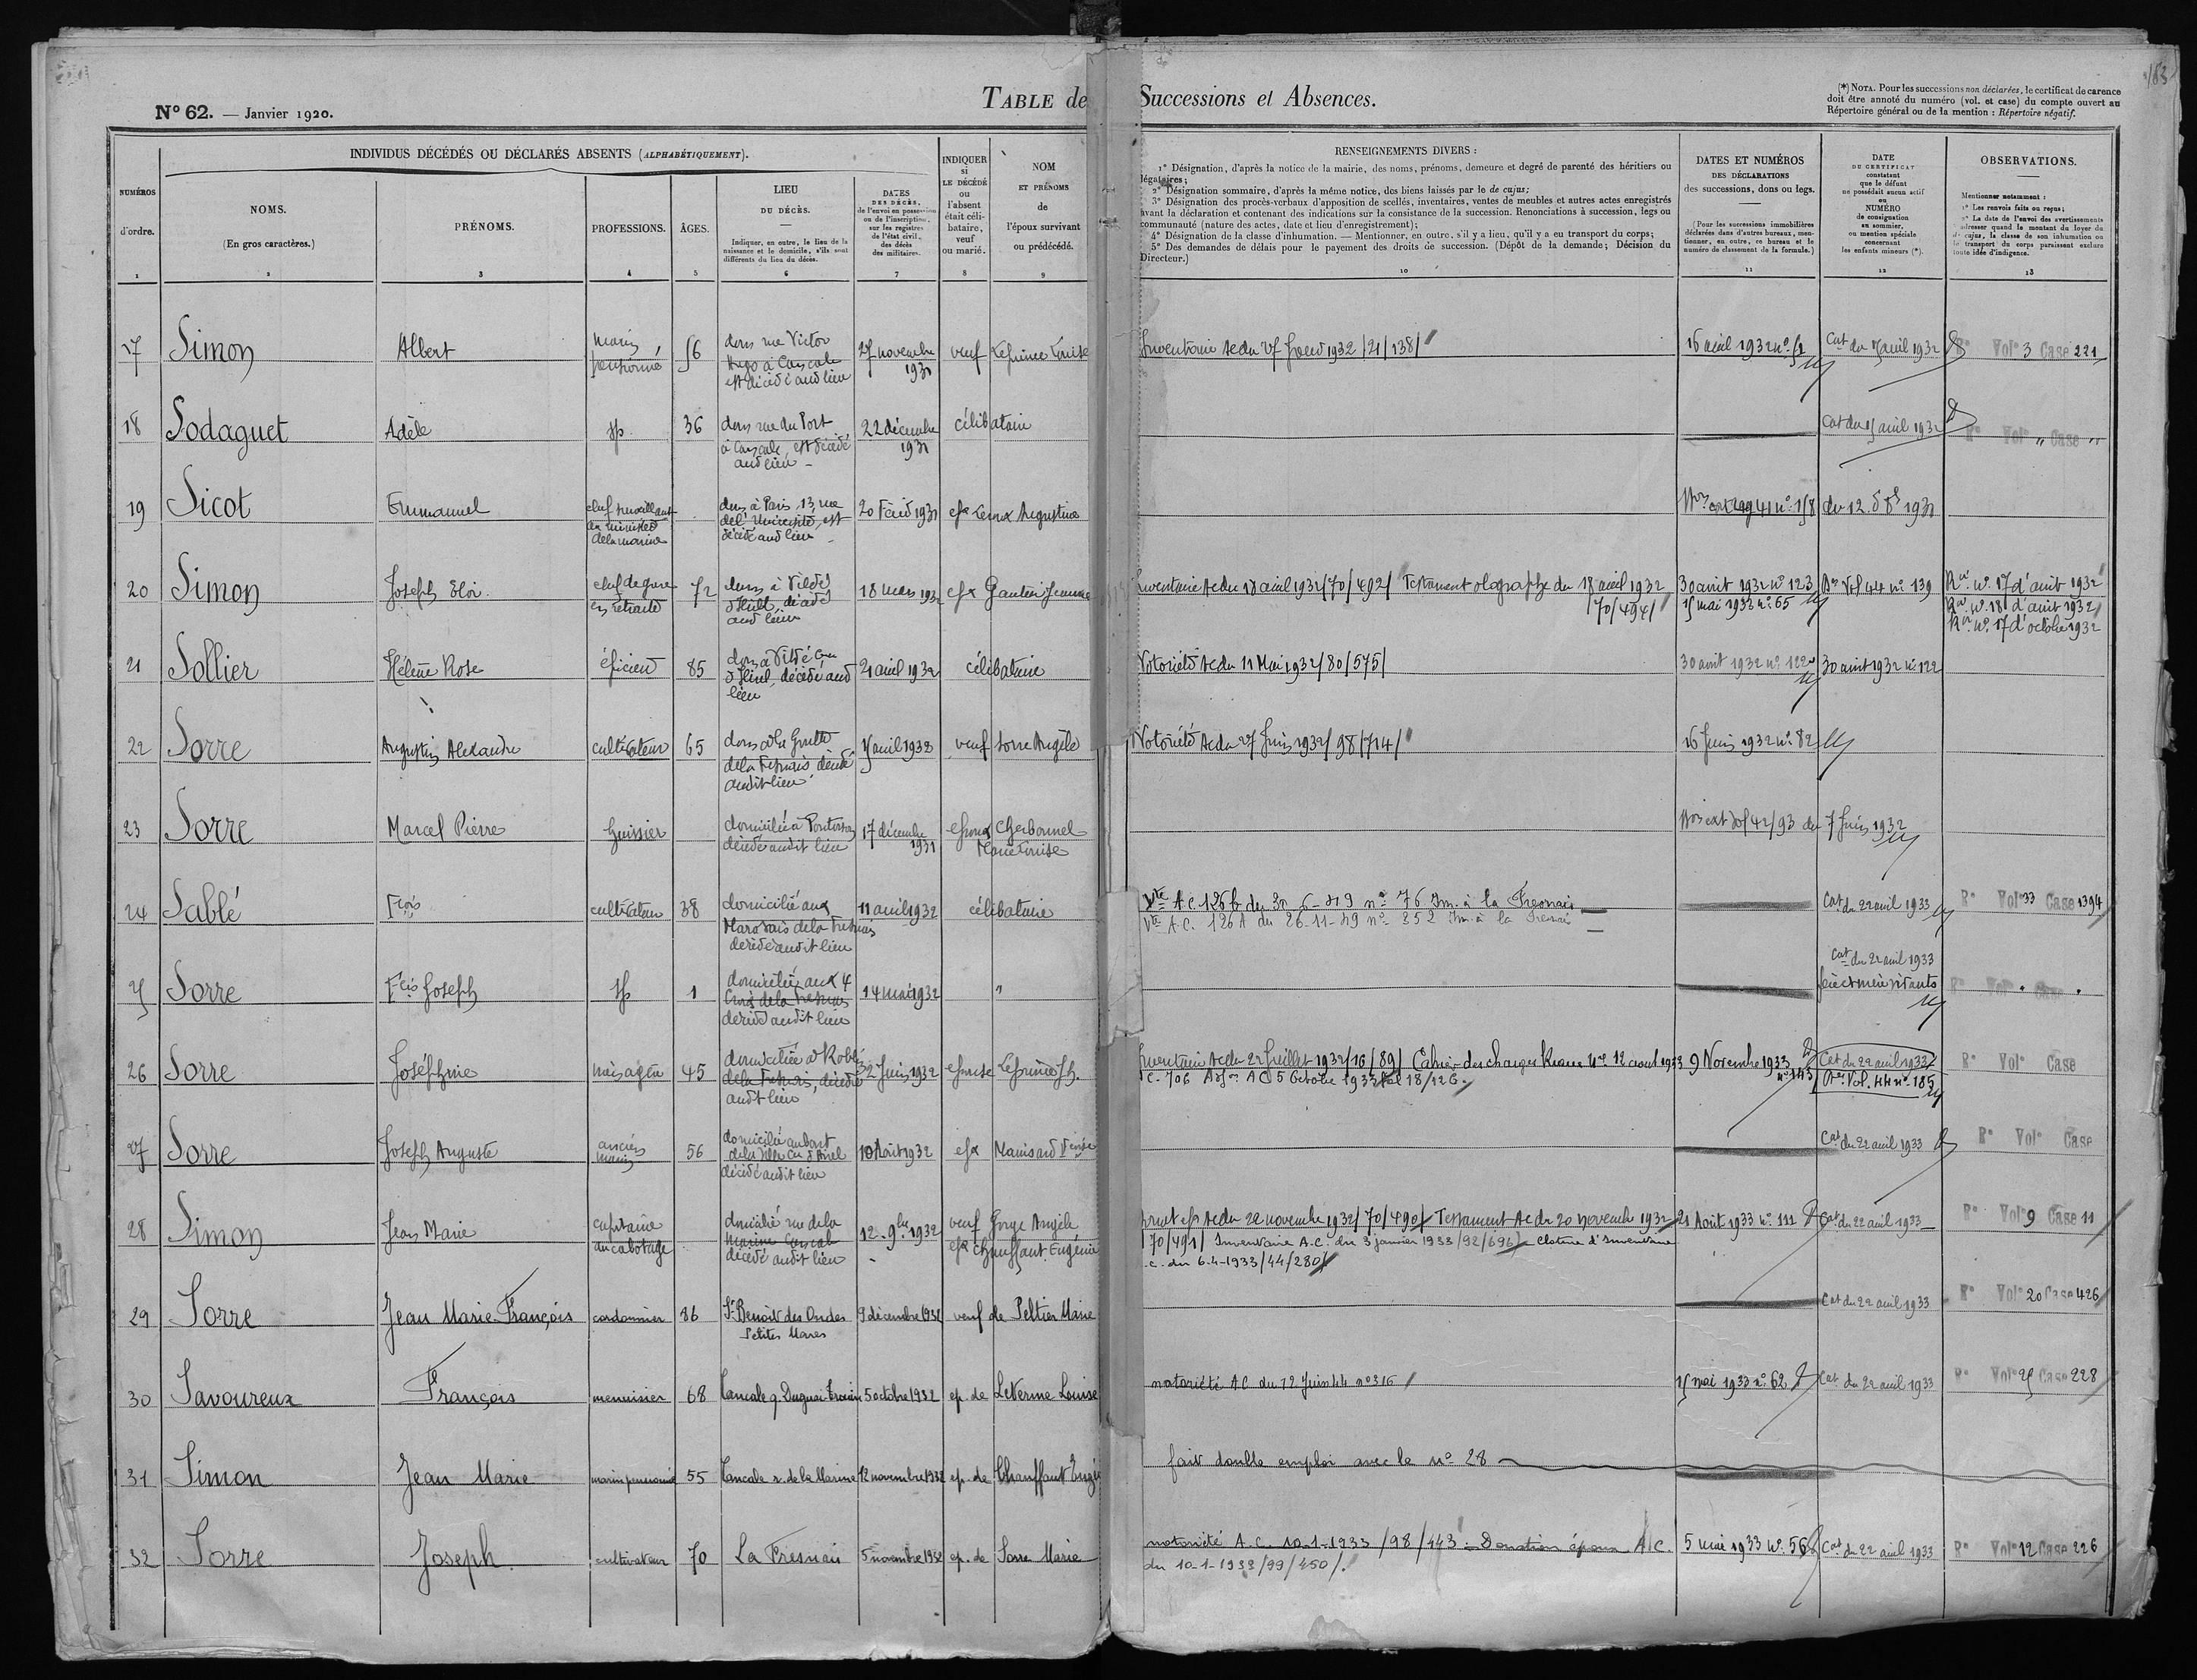 183
N° 62. — Janvier 1920.
TABLE de Successions et Absences.
(*) NOTA. Pour les successions non déclarées, le certificat de carence
doit être annoté du numéro (vol. et case) du compte ouvert au
Répertoire général ou de la mention : Répertoire négatif.
INDIVIDUS DÉCÉDÉS OU DÉCLARÉS ABSENTS (ALPHABÉTIQUEMENT).
NUMÉROS
d'ordre.
1
NOMS.
(En gros caractères.)
2
PRÉNOMS.
3
PROFESSIONS.
4
ÂGES.
5
LIEU
DU DÉCÈS.
Indiquer, en outre, le lieu de la
naissance et le domicile, s'ils sont
différents du lieu du décès.
6
DATES
DES DÉCÈS,
de l'envoi en possession
ou de l'inscription,
sur les registres
de l'état civil,
des décès
des militaires.
7
INDIQUER
si
LE DÉCÉDÉ
ou
l'absent
était céli-
bataire,
veuf
ou marié.
8
NOM
ET PRÉNOMS
de
l'époux survivant
ou prédécédé.
9
RENSEIGNEMENTS DIVERS :
1° Désignation, d'après la notice de la mairie, des noms, prénoms, demeure et degré de parenté des héritiers ou
légataires;
2° Désignation sommaire, d'après la même notice, des biens laissés par le de cujus;
3° Désignation des procès-verbaux d'apposition de scellés, inventaires, ventes de meubles et autres actes enregistrés
avant la déclaration et contenant des indications sur la consistance de la succession. Renonciations à succession, legs ou
communauté (nature des actes, date et lieu d'enregistrement);
4° Désignation de la classe d'inhumation. — Mentionner, en outre, s'il y a lieu, qu'il y a eu transport du corps;
5° Des demandes de délais pour le payement des droits de succession. (Dépôt de la demande; Décision du
Directeur.)
10
DATES ET NUMÉROS
DES DÉCLARATIONS
des successions, dons ou legs.
(Pour les successions immobilières
déclarées dans d'autres bureaux, men-
tionner, en outre, ce bureau et le
numéro de classement de la formule.)
11
DATE
DU CERTIFICAT
constatant
que le défunt
ne possédait aucun actif
ou
NUMÉRO
de consignation
au sommier,
ou mention spéciale
concernant
les enfants mineurs (*).
12
OBSERVATIONS.
Mentionner notamment :
1° Les renvois faits ou reçus;
2° La date de l'envoi des avertissements
à adresser quand le montant du loyer du
de cujus, la classe de son inhumation ou
le transport du corps paraissent exclure
toute idée d'indigence.
13
17 Simon Albert marin pensionné 56 dem rue Victor
Hugo à Cancale
est décédé aud lieu
27 novembre
1931
veuf Leprince Louise
16 avril 1932 n° 51 Cat du 15 avril 1932 R° Vol° 3 Case 221
18 Sodaguet Adèle sp 36 dem rue du Port
à Cancale, est décédé
aud lieu
22 décembre
1931
célibataire
Cat du 15 avril 1932 R° Vol° " Case "
19 Sicot Emmanuel chef surveillant
au ministère
de la marine
dem à Paris 13, rue
de l'Université, est
décédé aud lieu
1931 Augustine
41 n° 158 du 12 1931
20 Simon Joseph Eloi chef de gare
en retraite
72 dem à Vildé
décédé
aud lieu
18 mars 1932 epx Gautier Jeanne
Inventaire Ac du 18 avril 1932/70/492/ Testament olographe du 18 avril 1932
/70/494/
30 août 1932 n° 123
15 mai 1933 n° 65
Vol 44 n° 139
n° 17 d'août 1932
n° 18 d'août 1932
n° 17 d'octobre 1932
21 Sollier Hélène Rose 85 décédé aud
lieu
21 avril 1932 célibataire
Notoriété Ac du 11 Mai 1932/80/575/
30 août 1932 n° 122 30 août 1932 n° 122
22 Sorre Augustin Alexandre cultivateur 65 dem à la Goutte
de la Fresnais décédé
audit lieu
avril 1932 veuf Sorre Angèle
Notoriété Ac du 27 Juin 1932/98/714/
16 Juin 1932 n° 82
23 Sorre Marcel Pierre huissier domicilié à Pontorson
décédé audit lieu
17 décembre
1931
époux Cherbonnel
Marie Louise
42/93 du 7 Juin 1932
24 Sablé Fçois cultivateur 38 domicilié aux
de la Fresnais
décédé audit lieu
11 avril 1932 célibataire
Vte A.C. 126 b du 30-6-49 n° 76 Im. à la Fresnais
Vte A.C. 126 A du 26-11-49 n° 352 Im. à la Fresnais
Cat du 22 avril 1933 R° Vol° 33 Case 1394
25 Sorre Fçois Joseph sp 1 domicilié aux 4
Croix de la Fresnais
décédé audit lieu
14 mai 1932 "
Cat du 22 avril 1933
père et mère vivants R° Vol° Case
26 Sorre Joséphine ménagère 45 de la Fresnais, décédée
audit lieu
Juin 1932 épouse Leprince Jh.
Inventaire Ac du 22 Juillet 1932/16/89/ Cahier des charges août 1933
C. 706 AC 5 Octobre 1933 18/126
9 Novembre 1933
n° 143
Cat du 22 avril 1933
Vol. 44 n° 185
R° Vol° Case
27 Sorre Joseph Auguste ancien
marin
56 domicilié au bout
de la Ville
décédé audit lieu
10 Août 1932 epx
Cat du 22 avril 1933 R° Vol° Case
28 Simon Jean Marie capitaine
au cabotage
domicilié rue de la
Marine Cancale
décédé audit lieu
12. 9bre 1932 veuf Angèle
epx Chauffaut Eugénie
Ac du 22 novembre 1932/70/490/ Testament Ac du 20 novembre 1932
/70/491/ Inventaire A.C. du 3 janvier 1933/92/696/ Cloture d'Inventaire
.c. du 6-4-1933/44/280/
21 Août 1933 n° 111 Cat du 22 avril 1933 R° Vol° 9 Case 11
29 Sorre Jean Marie François cordonnier 86 St Benoit des Ondes
Petites Mares
9 décembre 1932 veuf de Peltier Marie
Cat du 22 avril 1933 R° Vol° 20 Case 426
30 Savoureux François menuisier 68 Cancale q. Duguai-Trouin 5 octobre 1932 ep. de LeTerme Louise
notoriété AC du 12 Juin 44 n° 316
15 mai 1933 n° 62 Cat du 22 avril 1933 R° Vol° 25 Case 228
31 Simon Jean Marie marin pensionné 55 Cancale r. de la Marine 12 novembre 1932 ep. de Chauffaut Eugénie
fait double emploi avec le n° 28
32 Sorre Joseph cultivateur 70 La Fresnais 5 novembre 1932 ep. de Sorre Marie
notoriété A.C. 10-1-1933/98/443 - Donation époux A.C.
du 10-1-1933/99/450/.
5 mai 1933 n° 56 Cat du 22 avril 1933 R° Vol° 12 Case 226